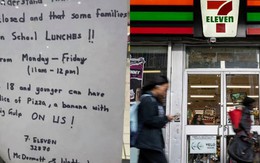 understand
closed and that some families
on School LUNCHES !!
from Monday - Friday
(11am - 12pm)
18 and younger can have
slice of Pizza, a banana with
Big Gulp ON US!
7-ELEVEN
32870
(McDermott &
7
ELEVEN